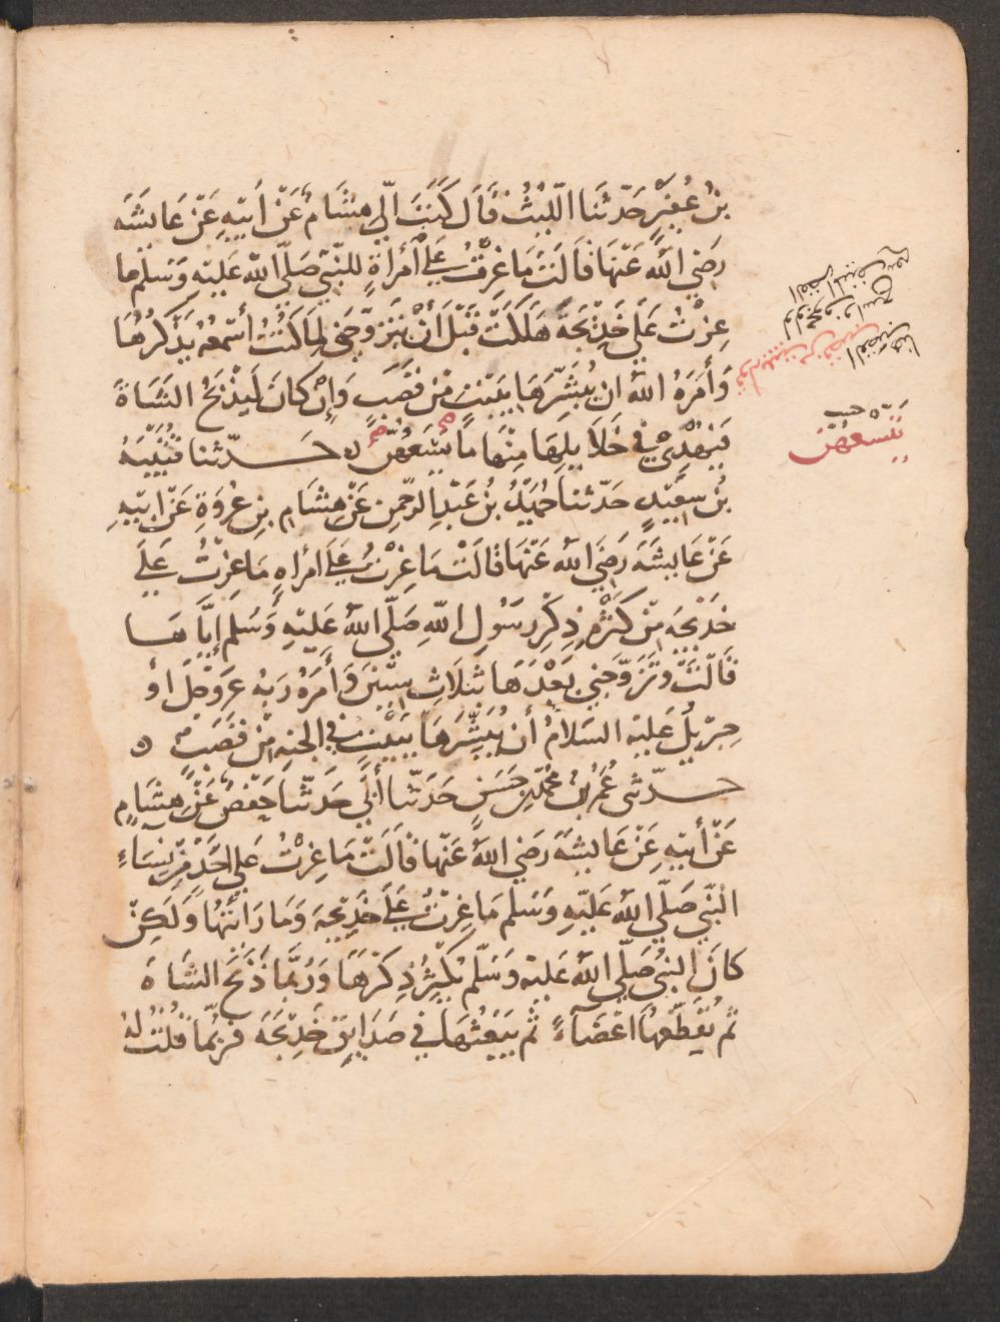 بنُ عُفَيْرٍ حَدّثَنَا اللّيْثُ قَالَ كَتَبَ إلَي هِشَامٌ عَنْ أَبيْهِ عَنْ عَايشَه
رَضيَ اللهُ عَنْهَا قَالَتْ مَا غِرْتُ عَلَى امْرأةٍ للنَّبيّ صَلّى اللهُ عَليْهِ وَسَلم ما
غِرْتُ عَلَي خَدِيْجَةَ هَلَكَتْ قَبْلَ أَنْ يَتَزوّجَني لِمَا كُنْتُ أسْمَعُهُ يَذْكرُهَا
وَأمَرَهُ اللهُ ان يُبَشّرَهَا ببَيْتٍ مِنْ قَصَبٍ وَإنْ كانَ لَيَذْبَحُ الشَاةَ
فَيُهْدِيْ في خَلَايلِهَا مِنْهَا مَا يَسَعُهُنّ حَدّثنا قُتَيْبَهُ
بْنُ سَعِيْدٍ حَدّثنا حُمَيْدُ بْنُ عَبْدِ الرَّحمٰنِ عَنْ هِشَامِ بنِ عُرْوَةَ عَنْ ابيْهِ
عَنْ عَايشَةَ رَضيَ اللهُ عَنْهَا قَالَتْ مَا غِرْتُ عَلَى امْراهٍ مَا غِرْتُ عَلَى
خَدِيْجَه مِنْ كَثْرَةِ ذِكْرِ رسَوُلِ اللهِ صَلّى اللهُ عَليْهِ وَسَلم إيَّاهَا
قَالَتْ وَتَزَوّجَني بَعْدَهَا بثَلَاثِ سِنِيْنَ وَأَمَرَهُ رَبُهُ عزَ وَجَل أوْ
جِبْريلُ عَليْهِ السَلَامُ أن يُبَشّرَهَا ببَيْتٍ في الجنهِ مِنْ قَصَبٍ ه
حَدّثني عُمَرُ بْنُ مُحَمّدِ بنِ حَسَنٍ حَدَثّنا أبي حَدثنَا حَفْصٌ عَنْ هِشَامٍ
عَنْ أبيْهِ عَنْ عَايشَةَ رَضيَ اللهُ عَنْها قَالَتْ مَا غِرْتُ عَلي احَدٍ مِنْ نِسَاءِ
النّبي صَلّى اللهُ عَليْهِ وَسَلم مَا غِرْتُ عَلَى خَدِيْجَه وَمَا رَأيْتُهَا وَلكِنْ
كانَ النبيُ صَلّى اللهُ عَليْهِ وَسَلّم يُكْثِرُ ذِكْرَهَا وَرُبَّمَا ذَبَحَ الشَاةَ
ثمّ يُقَطّعُهَا اعْضَآءً ثُم يَبْعَثُهَا في صَدَايقِ خَدِيْجَةَ فرُبَّمَا قُلْتُ لهُ
القصب هنا